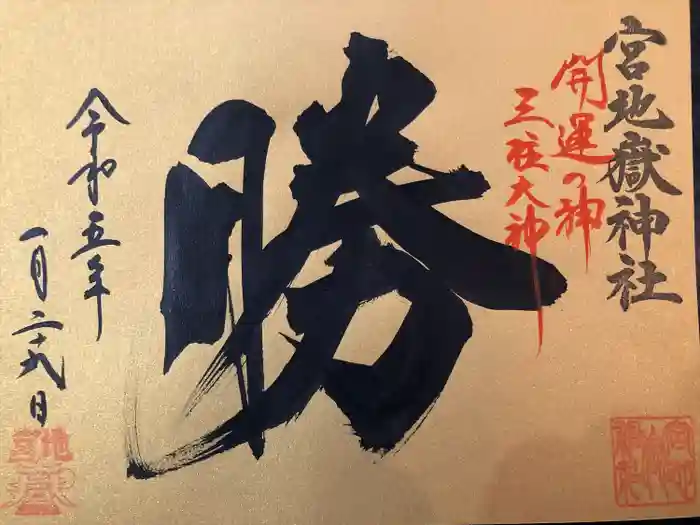 宮地嶽神社
開運の神
三柱大神
勝
令和五年
一月二十九日